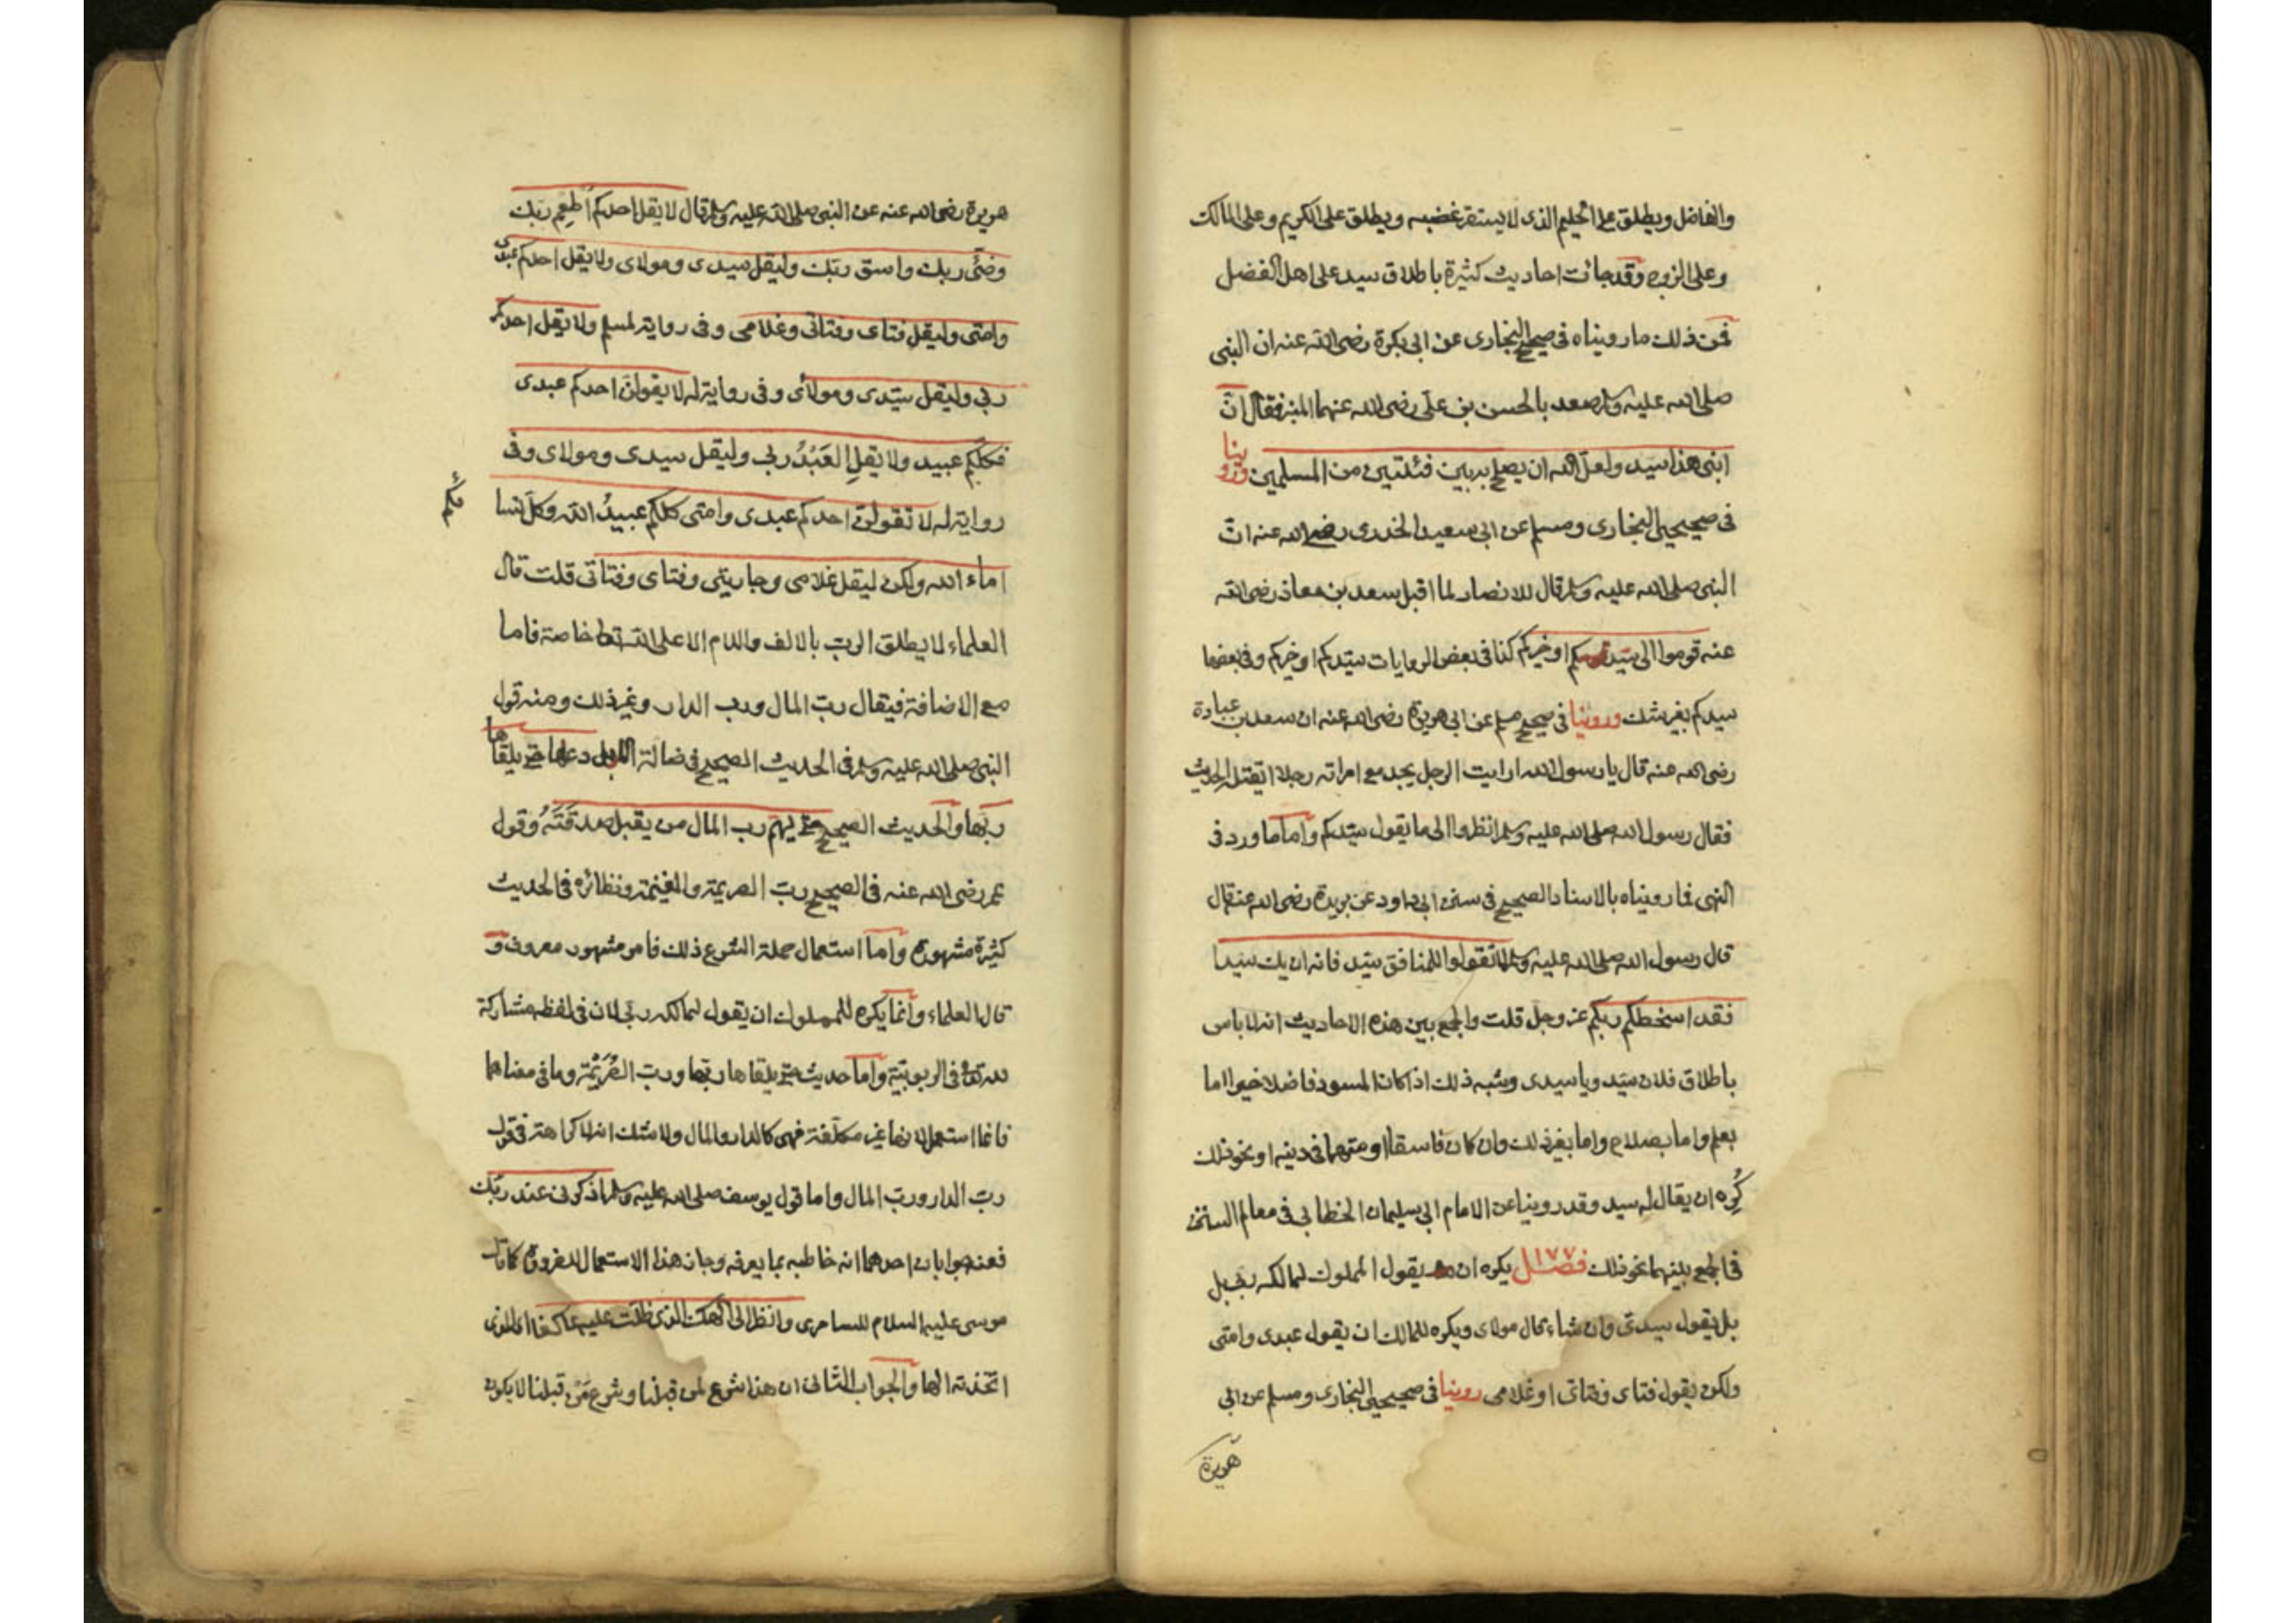 والفاضل ويطلق على الحليم الذى لا يستقر غضبه ويطلق على الكريم وعلى المالك
وعلى الزوج وقد جائت احاديث كثيرة باطلاق سيد على اهل الفضل
فمن ذلك ما رويناه فى صحيح البخارى عن ابى بكرة رضى الله عنه ان النبى
صلى الله عليه وسلم صعد بالحسن بن على رضى الله عنهما المنبر فقال انّ
ابنى هذا سيد ولعل الله ان يصلح به بين فئتين من المسلمين وروينا
فى صحيحى البخارى ومسلم عن ابى سعيد الخدرى رضى الله عنه انّ
النبى صلى الله عليه وسلم قال للانصار لما اقبل سعد بن معاذ رضى الله
عنه قوموا الى سيدكم او خيركم كذا فى بعض الروايات سيّدكم او خيركم وفى بعضها
سيدكم بغير شك وروينا فى صحيح مسلم عن ابى هريرة رضى الله عنه ان سعد بن عبادة
رضى الله عنه قال يا رسول الله ارايت الرجل يجد مع امراته رجلا ايقتله الحديث
فقال رسول الله صلى الله عليه وسلم انظروا الى ما يقول سيّدكم وامّا ما ورد فى
النهى فما رويناه بالاسناد الصحيح فى سنن ابى داود عن بريدة رضى الله عنه قال
قال رسول الله صلى الله عليه وسلم لا تقولوا للمنافق سيّد فانه ان يك سيدا
فقد اسخطكم ربكم عز وجل قلت والجمع بين هذه الاحاديث انه لا باس
باطلاق فلان سيّد ويا سيدى وشبه ذلك اذا كان المسود فاضلا خيرا اما
بعلم واما بصلاح واما بغير ذلك وان كان فاسقا او متهما فى دينه او نحو ذلك
كُرِه ان يقال له سيد وقد روينا عن الامام ابى سليمان الخطابى فى معالم السنن
فى الجمع بينهما نحو ذلك فصل ١٧٧ يكره ان يقول المملوك لمالكه ربى بل
بل يقول سيدى وان شاء قال مولاى ويكره للمالك ان يقول عبدى وامتى
ولكن يقول فتاى وفتاتى او غلامى روينا فى صحيحى البخارى ومسلم عن ابى
هريرة
هريرة رضى الله عنه عن النبى صلى الله عليه وسلم قال لا يقل احدكم اَطعِم ربك
وضّئ ربك واسق ربّك وليقل سيدى ومولاى ولا يقل احدكم عبدى
وامتى وليقل فتاى وفتاتى وغلامى وفى رواية لمسلم ولا يقل احدكم
ربى وليقل سيّدى ومولاى وفى رواية له لا يقولنّ احدكم عبدى
فكلكم عبيد ولا يقلِ العَبْدُ ربى وليقل سيدى ومولاى وفى
رواية له لا تقولنّ احدكم عبدى وامتى كلكم عبيدُ الله وكل نسا
ئكم
اماء الله ولكن ليقل غلامى وجاريتى وفتاى وفتاتى قلت قال
العلماء لا يطلق الربّ بالالف واللام الا على الله تعالى خاصة فاما
مع الاضافة فيقال ربّ المال ورب الدار وغير ذلك ومنه قول
النبى صلى الله عليه وسلم فى الحديث الصحيح فى ضالة الابل دعها حتى يلقاها
ربّها والحديث الصحيح حتى يهم رب المال من يقبل صدقتَه وقول
عمر رضى الله عنه فى الصحيح ربّ الصريمة والغنيمة ونظائره فى الحديث
كثيرة مشهورة وامّا استعمال حملة الشرع ذلك فامر مشهور معروف و
قال العلماء وانما يكره للمملوك ان يقول لمالكه ربى لان فى لفظه مشاركة
لله تعالى فى الربوبيّة وامّا حديث حتى يلقاها ربّها وربّ الصُرَيْمَة وما فى معناهما
فانما استعمل لانها غير مكلّفة فهى كالدار والمال ولا شك انه لا كراهة فى قول
ربّ الدار وربّ المال واما قول يوسف صلى الله عليه وسلم اذكرنى عند ربّك
فعنه جوابان احدهما انه خاطبه بما يعرفه وجاز هذا الاستعمال للضرورة كما قال
موسى عليه السلام للسامرى وانظر الى الهك الذى ظلت عليه عاكفا اى الذى
اتخذته الها والجواب الثانى ان هذا شرع لمن قبلنا وشرع مَنْ قبلنا لا يكون